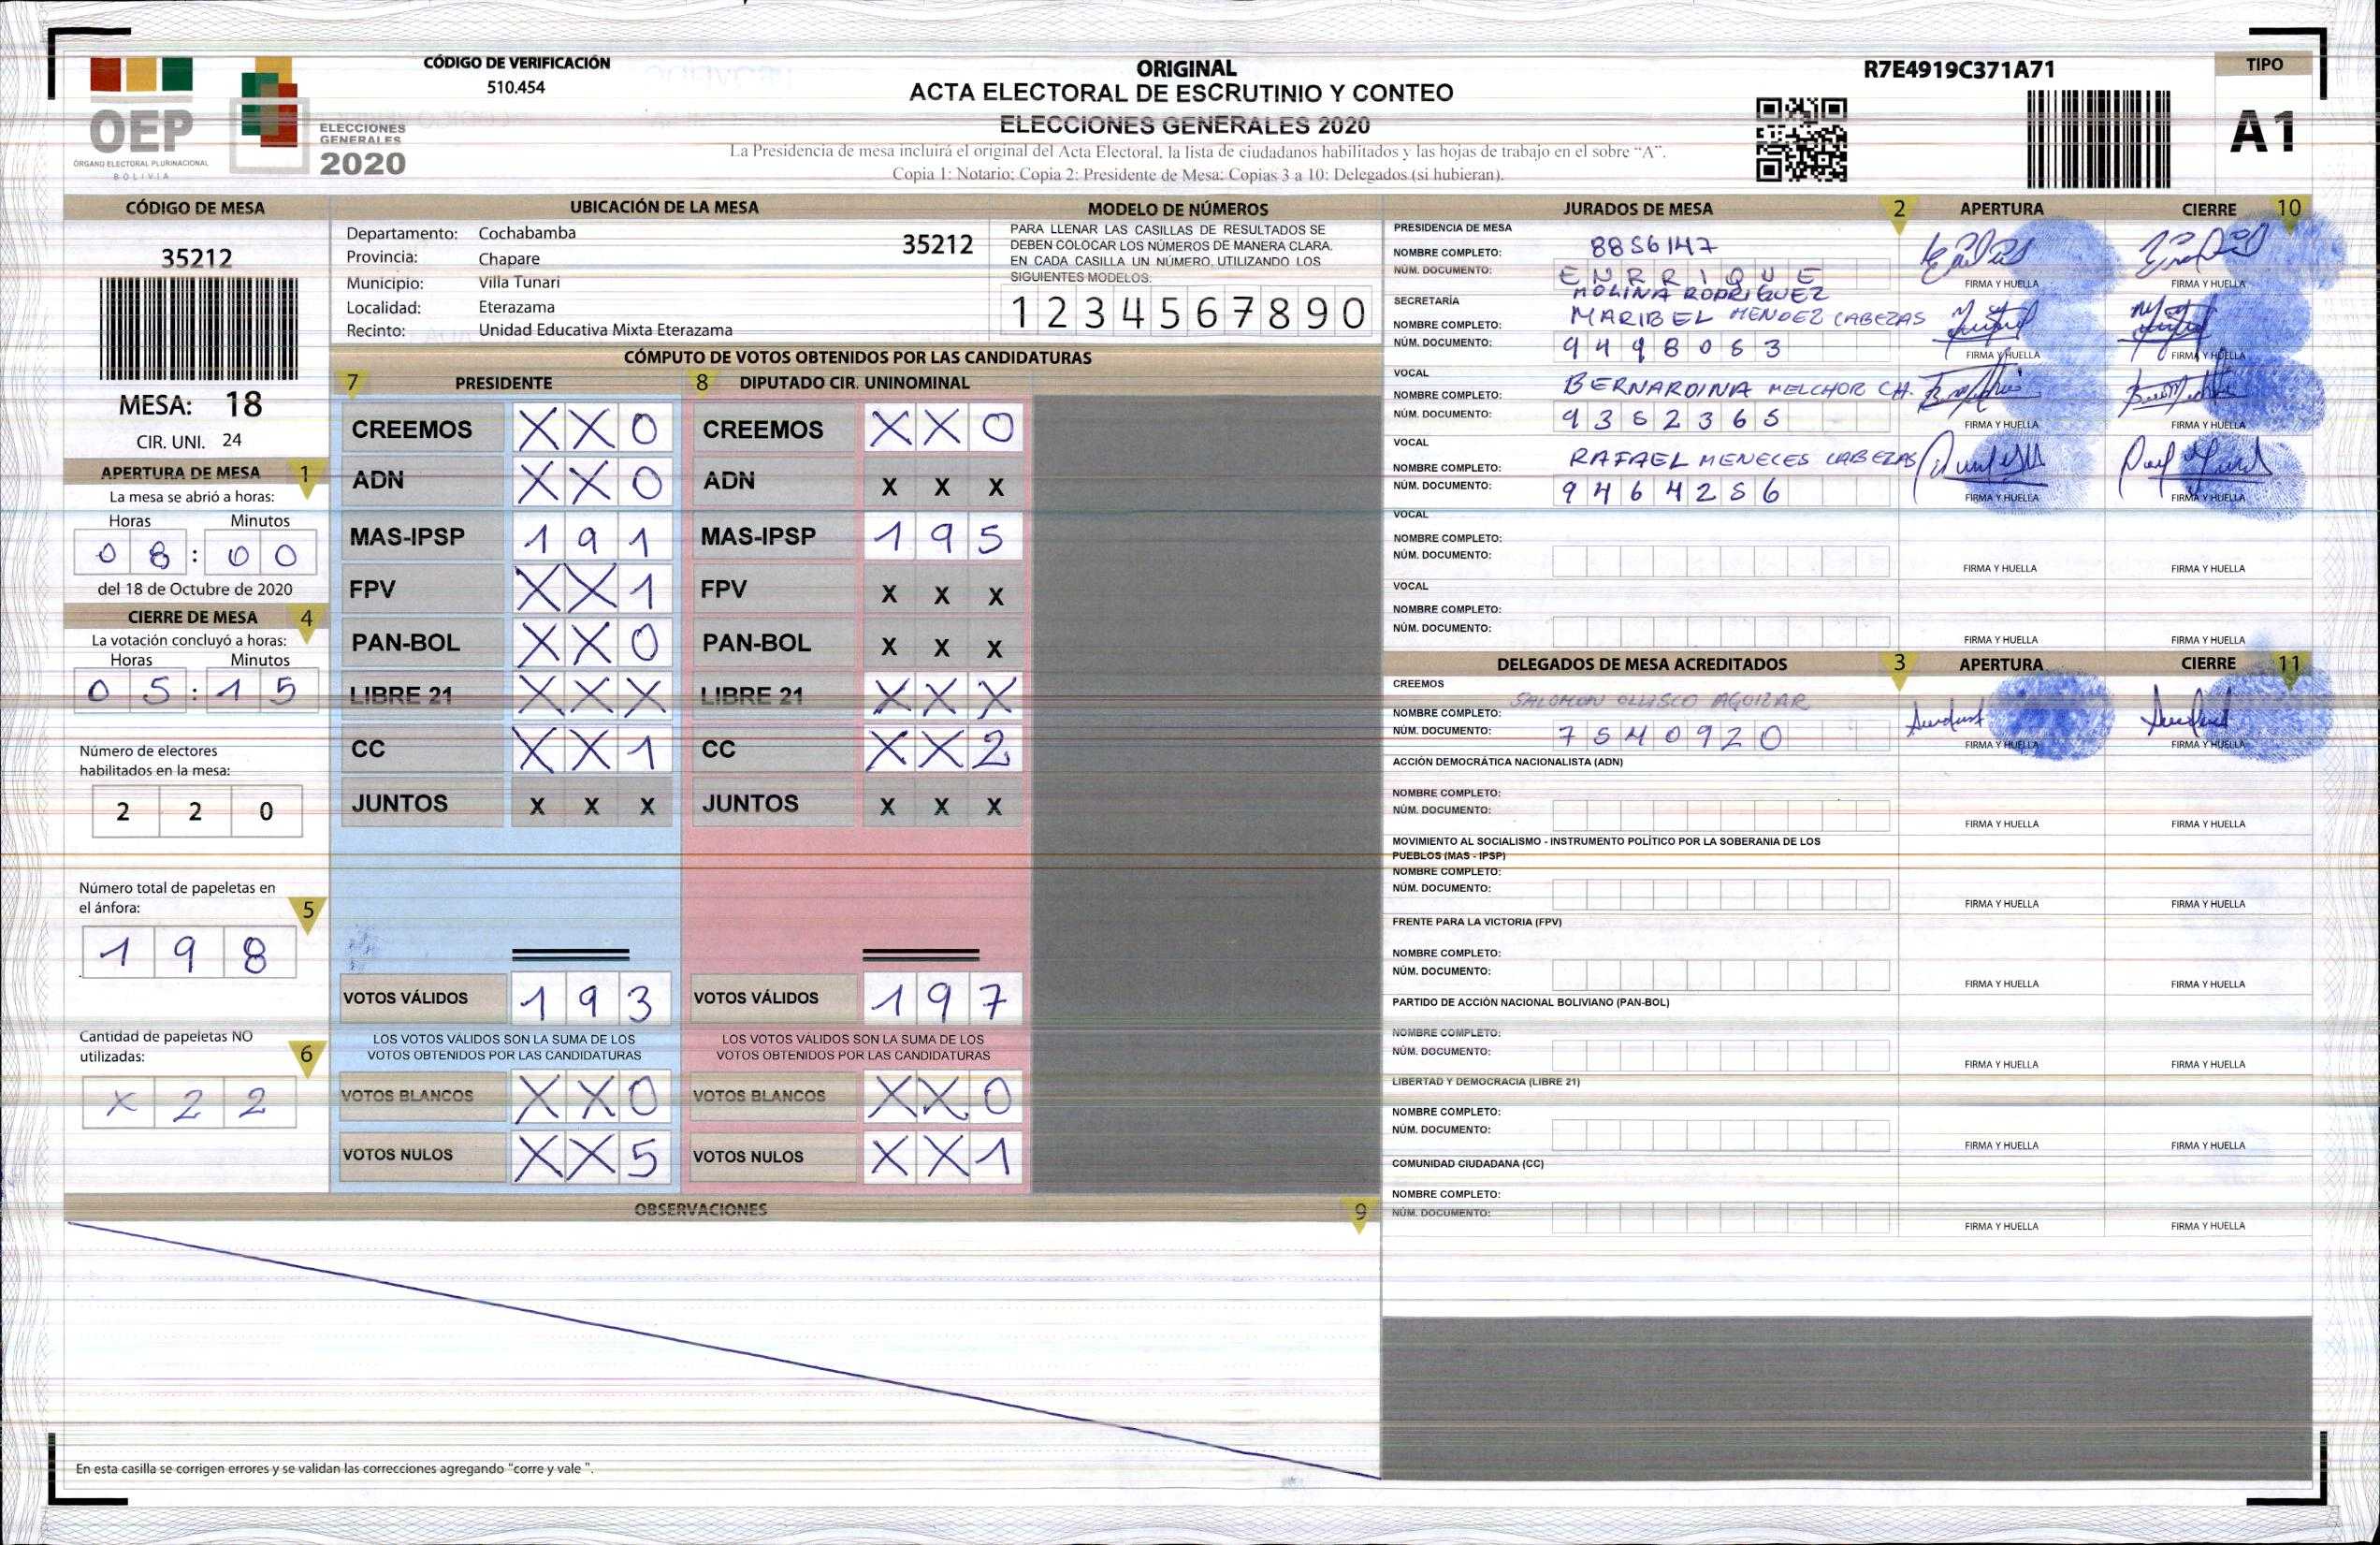 CÓDIGO DE VERIFICACIÓN
510.454
ORIGINAL
ACTA ELECTORAL DE ESCRUTINIO Y CONTEO
ELECCIONES GENERALES 2020
La Presidencia de mesa incluirá el original del Acta Electoral, la lista de ciudadanos habilitados y las hojas de trabajo en el sobre “A”.
Copia 1: Notario; Copia 2: Presidente de Mesa; Copias 3 a 10: Delegados (si hubieran).
R7E4919C371A71
TIPO
A1
OEP
ÓRGANO ELECTORAL PLURINACIONAL
BOLIVIA
ELECCIONES
GENERALES
2020
CÓDIGO DE MESA
35212
MESA: 18
CIR. UNI. 24
APERTURA DE MESA 1
La mesa se abrió a horas:
Horas Minutos
0 8 : 0 0
del 18 de Octubre de 2020
CIERRE DE MESA 4
La votación concluyó a horas:
Horas Minutos
0 5 : 1 5
Número de electores
habilitados en la mesa:
2 2 0
Número total de papeletas en
el ánfora: 5
1 9 8
Cantidad de papeletas NO
utilizadas: 6
X 2 2
UBICACIÓN DE LA MESA
Departamento: Cochabamba
35212
Provincia: Chapare
Municipio: Villa Tunari
Localidad: Eterazama
Recinto: Unidad Educativa Mixta Eterazama
MODELO DE NÚMEROS
PARA LLENAR LAS CASILLAS DE RESULTADOS SE
DEBEN COLOCAR LOS NÚMEROS DE MANERA CLARA,
EN CADA CASILLA UN NÚMERO, UTILIZANDO LOS
SIGUIENTES MODELOS:
1 2 3 4 5 6 7 8 9 0
CÓMPUTO DE VOTOS OBTENIDOS POR LAS CANDIDATURAS
7 PRESIDENTE 8 DIPUTADO CIR. UNINOMINAL
CREEMOS X X 0 CREEMOS X X 0
ADN X X 0 ADN X X X
MAS-IPSP 1 9 1 MAS-IPSP 1 9 5
FPV X X 1 FPV X X X
PAN-BOL X X 0 PAN-BOL X X X
LIBRE 21 X X X LIBRE 21 X X X
CC X X 1 CC X X 2
JUNTOS X X X JUNTOS X X X
VOTOS VÁLIDOS 1 9 3 VOTOS VÁLIDOS 1 9 7
LOS VOTOS VÁLIDOS SON LA SUMA DE LOS LOS VOTOS VÁLIDOS SON LA SUMA DE LOS
VOTOS OBTENIDOS POR LAS CANDIDATURAS VOTOS OBTENIDOS POR LAS CANDIDATURAS
VOTOS BLANCOS X X 0 VOTOS BLANCOS X X 0
VOTOS NULOS X X 5 VOTOS NULOS X X 1
OBSERVACIONES 9
En esta casilla se corrigen errores y se validan las correcciones agregando “corre y vale ”.
JURADOS DE MESA 2 APERTURA CIERRE 10
PRESIDENCIA DE MESA
NOMBRE COMPLETO: 8856147
NÚM. DOCUMENTO: ENRRIQUE
MOLINA RODRIGUEZ
FIRMA Y HUELLA FIRMA Y HUELLA
SECRETARÍA
NOMBRE COMPLETO: MARIBEL MENDEZ CABEZAS
NÚM. DOCUMENTO: 9498063
FIRMA Y HUELLA FIRMA Y HUELLA
VOCAL
NOMBRE COMPLETO: BERNARDINA MELCHOR CH.
NÚM. DOCUMENTO: 9352365
FIRMA Y HUELLA FIRMA Y HUELLA
VOCAL
NOMBRE COMPLETO: RAFAEL MENECES CABEZAS
NÚM. DOCUMENTO: 9464256
FIRMA Y HUELLA FIRMA Y HUELLA
VOCAL
NOMBRE COMPLETO:
NÚM. DOCUMENTO:
FIRMA Y HUELLA FIRMA Y HUELLA
VOCAL
NOMBRE COMPLETO:
NÚM. DOCUMENTO:
FIRMA Y HUELLA FIRMA Y HUELLA
DELEGADOS DE MESA ACREDITADOS 3 APERTURA CIERRE 11
CREEMOS
NOMBRE COMPLETO: SALOMON AGUILAR
NÚM. DOCUMENTO: 7540920
FIRMA Y HUELLA FIRMA Y HUELLA
ACCIÓN DEMOCRÁTICA NACIONALISTA (ADN)
NOMBRE COMPLETO:
NÚM. DOCUMENTO:
FIRMA Y HUELLA FIRMA Y HUELLA
MOVIMIENTO AL SOCIALISMO - INSTRUMENTO POLÍTICO POR LA SOBERANIA DE LOS
PUEBLOS (MAS - IPSP)
NOMBRE COMPLETO:
NÚM. DOCUMENTO:
FIRMA Y HUELLA FIRMA Y HUELLA
FRENTE PARA LA VICTORIA (FPV)
NOMBRE COMPLETO:
NÚM. DOCUMENTO:
FIRMA Y HUELLA FIRMA Y HUELLA
PARTIDO DE ACCIÓN NACIONAL BOLIVIANO (PAN-BOL)
NOMBRE COMPLETO:
NÚM. DOCUMENTO:
FIRMA Y HUELLA FIRMA Y HUELLA
LIBERTAD Y DEMOCRACIA (LIBRE 21)
NOMBRE COMPLETO:
NÚM. DOCUMENTO:
FIRMA Y HUELLA FIRMA Y HUELLA
COMUNIDAD CIUDADANA (CC)
NOMBRE COMPLETO:
NÚM. DOCUMENTO:
FIRMA Y HUELLA FIRMA Y HUELLA